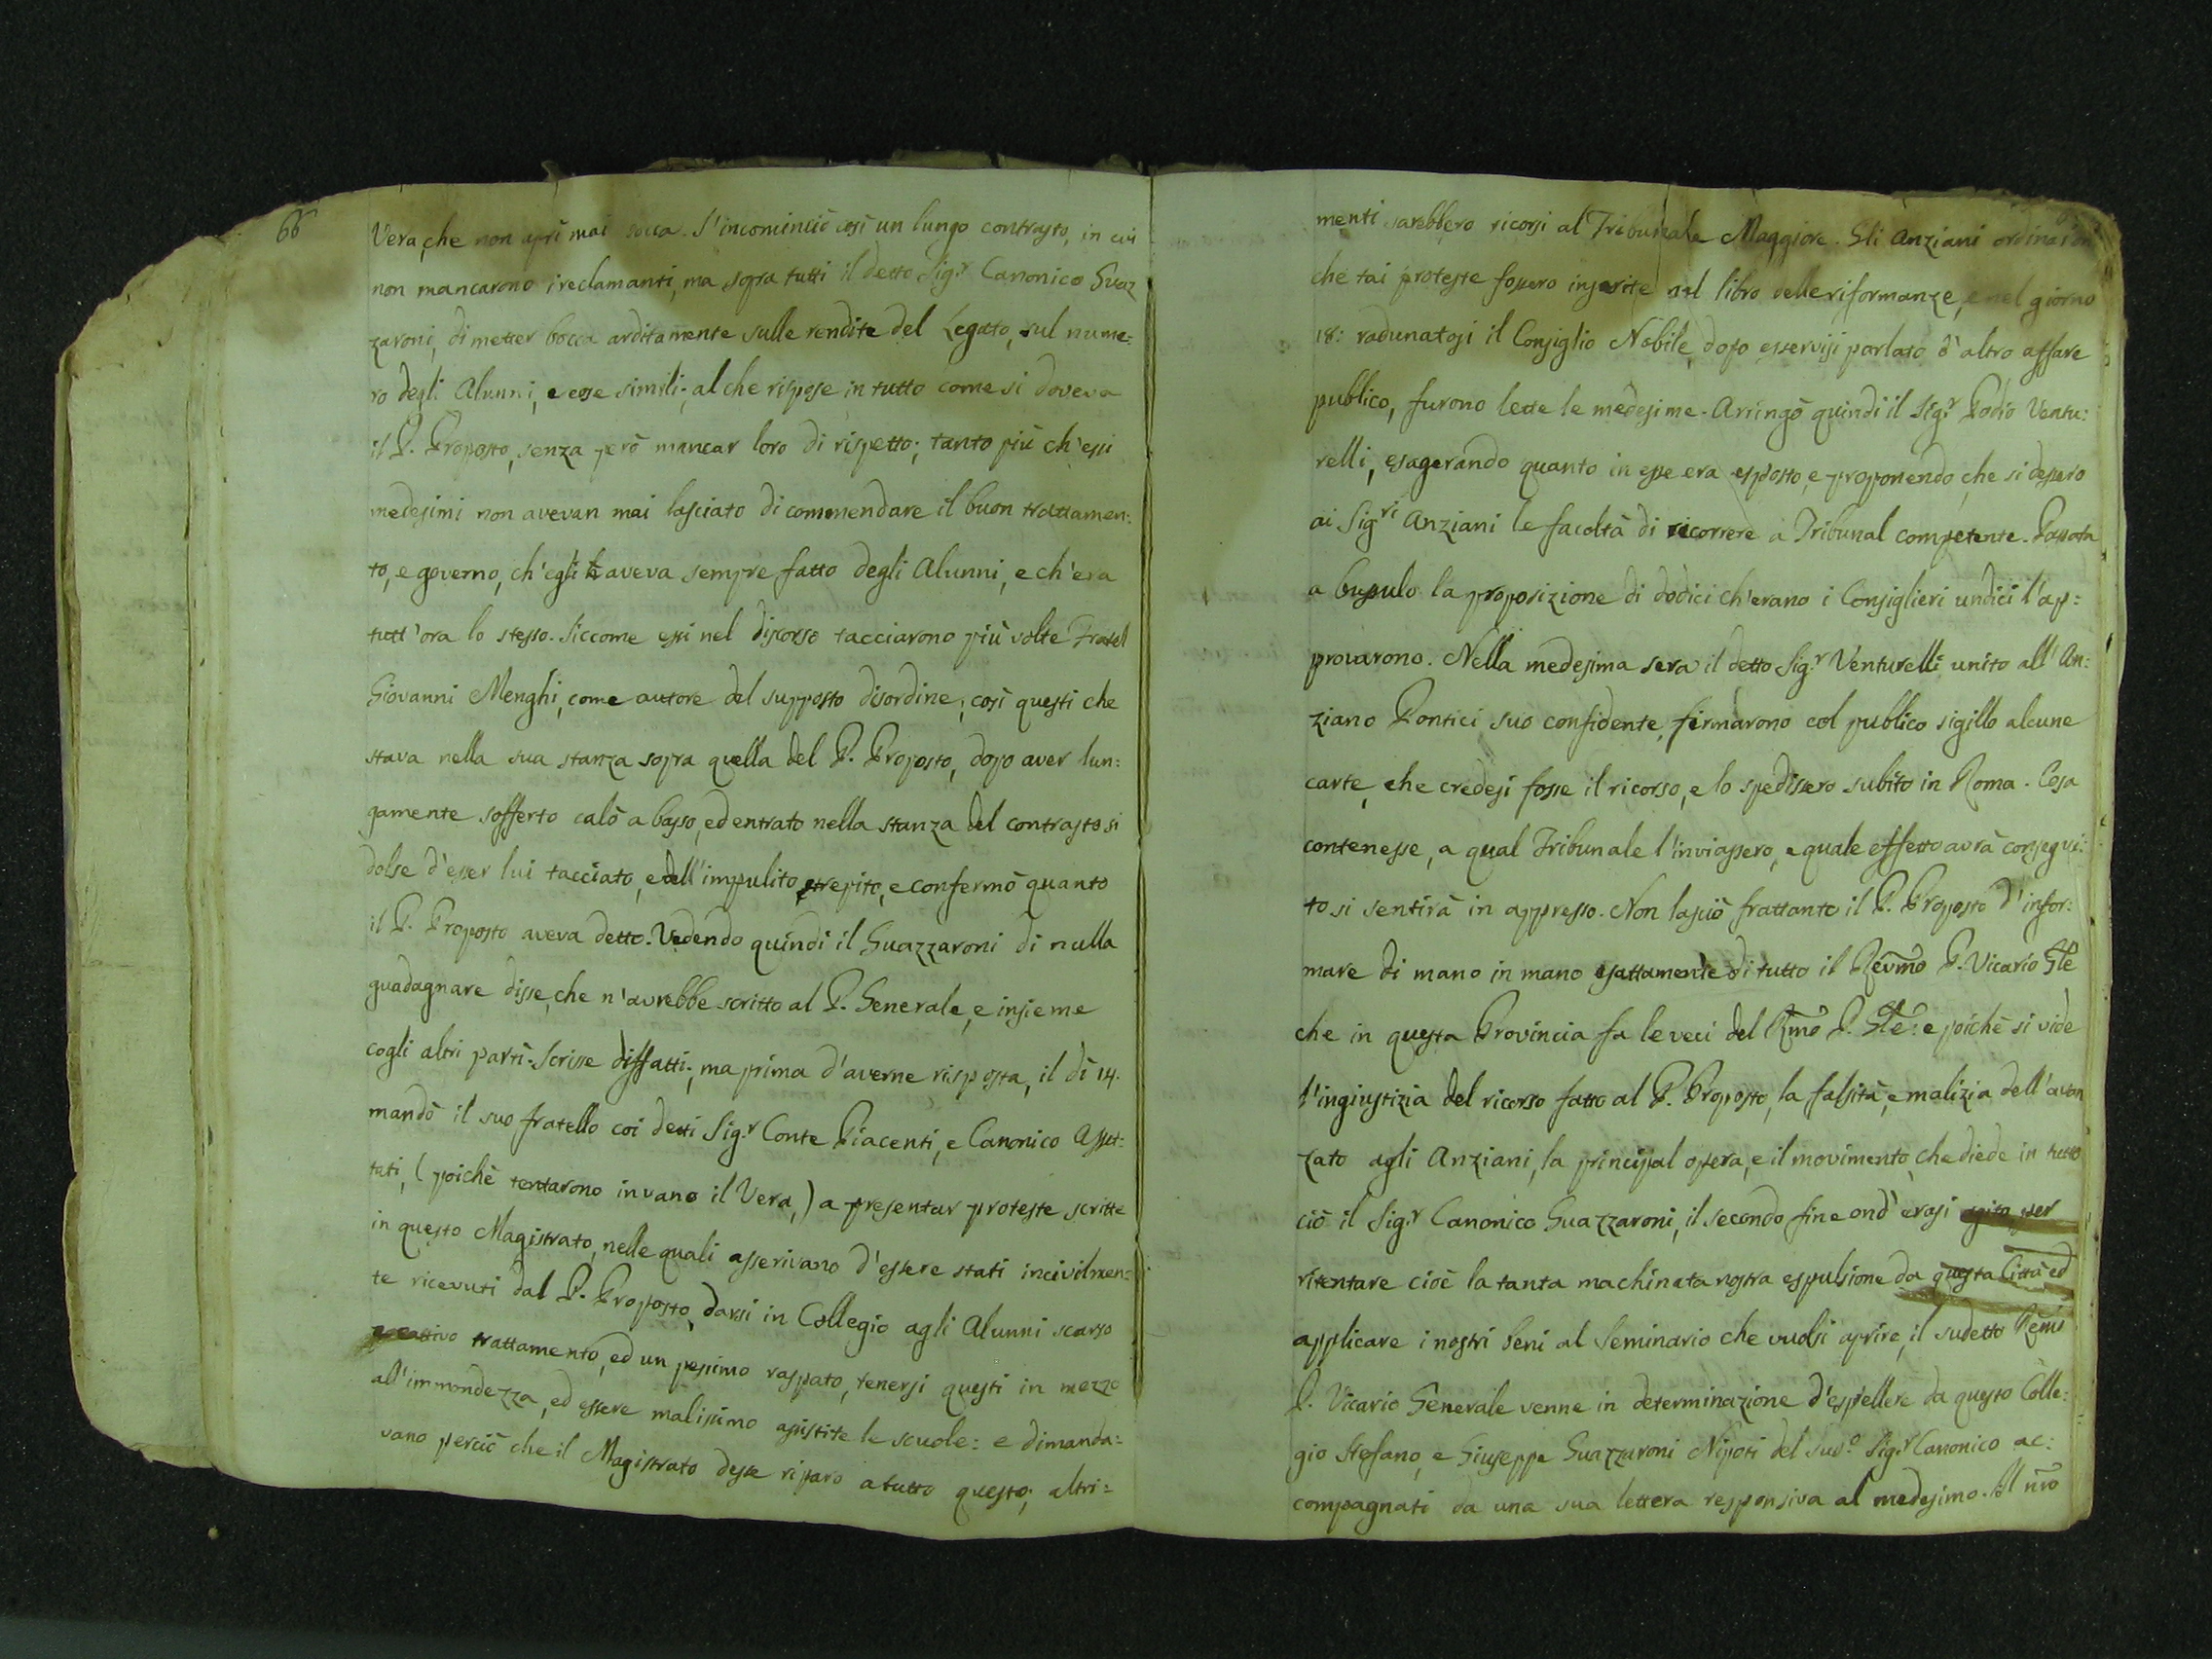 66
Vera, che non aprì mai bocca. S'incominciò così un lungo contrasto, in cui
non mancarono i reclamanti, ma sopra tutti il detto Sig.r Canonico Guaz
zaroni, di metter bocca arditamente sulle rendite del Legato, sul nume:
ro degli Alunni, e cose simili; al che rispose in tutto come si doveva
il P. Proposto, senza però mancar loro di rispetto; tanto più ch'essi
medesimi non avevan mai lasciato di commendare il buon trattamen:
to, e governo, ch'egli aveva sempre fatto degli Alunni, e ch'era
tutt'ora lo stesso. Siccome essi nel discorso tacciarono più volte Fratel
Giovanni Menghi, come autore del supposto disordine; così questi che
stava nella sua stanza sopra quella del P. Proposto, dopo aver lun:
gamente sofferto calò a basso, ed entrato nella stanza del contrasto si
dolse d'esser lui tacciato, e dell'impulito strepito, e confermò quanto
il P. Proposto aveva detto. Vedendo quindi il Guazzaroni di nulla
guadagnare disse, che n'avrebbe scritto al P. Generale, e insieme
cogli altri partì. Scrisse diffatti; ma prima d'averne risposta, il dì 14.
mandò il suo fratello coi detti Sig.r Conte Piacenti, e Canonico Asset:
tati, (poichè tentarono invano il Vera,) a presentar proteste scritte
in questo Magistrato, nelle quali asserivano d'essere stati incivilmen:
te ricevuti dal P. Proposto, darsi in Collegio agli Alunni scarso
e cattivo trattamento, ed un pessimo raspato, tenersi questi in mezzo
all'immondezza, ed essere malissimo assistite le scuole: e dimanda:
vano perciò che il Magistrato desse riparo a tutto questo; altri=
menti sarebbero ricorsi al Tribunale Maggiore. Gli Anziani ordinaron
che tai proteste fossero inserite nel libro delle riformanze, e nel giorno
18: radunatosi il Consiglio Nobile, dopo esservisi parlato d'altro affare
publico, furono lette le medesime. Arringò quindi il Sig.r Podio Ventu:
relli, esagerando quanto in esse era esposto, e proponendo, che si dessero
ai Sig.ri Anziani le facoltà di ricorrere a Tribunal competente. Passata
a bussulo la proposizione di dodici ch'erano i Consiglieri undici l'ap:
provarono. Nella medesima sera il detto Sig.r Venturelli unito all'An:
ziano Pontici suo confidente, firmarono col publico sigillo alcune
carte, che credesi fosse il ricorso, e lo spedissero subito in Roma. Cosa
contenesse, a qual Tribunale l'inviassero, e quale effetto avrà consegui:
to si sentirà in appresso. Non lasciò frattanto il P. Proposto d'infor:
mare di mano in mano esattamente di tutto il Revmo P. Vicario Gle
che in questa Provincia fa le veci del Rmo P. Gle: e poichè si vide
l'ingiustizia del ricorso fatto al P. Proposto, la falsità, e malizia dell'avan
zato agli Anziani, la principal opera, e il movimento, che diede in tutto
ciò il Sig.r Canonico Guazzaroni, il secondo fine ond'erasi agito, per
ritentare cioè la tanta machinata nostra espulsione da questa Città ed
applicare i nostri beni al Seminario che vuolsi aprire, il sudetto Remo
P. Vicario Generale venne in determinazione d'espellere da questo Colle:
gio Stefano, e Giuseppe Guazzaroni Nipoti del sud.o Sig.r Canonico ac:
compagnati da una sua lettera responsiva al medesimo. Il nro